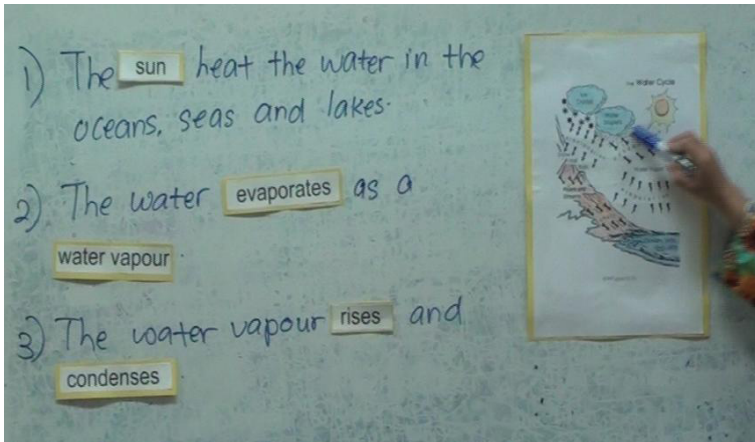 1) The sun heat the water in the
oceans, seas and lakes.
2) The water evaporates as a
water vapour.
3) The water vapour rises and
condenses.
The Water Cycle